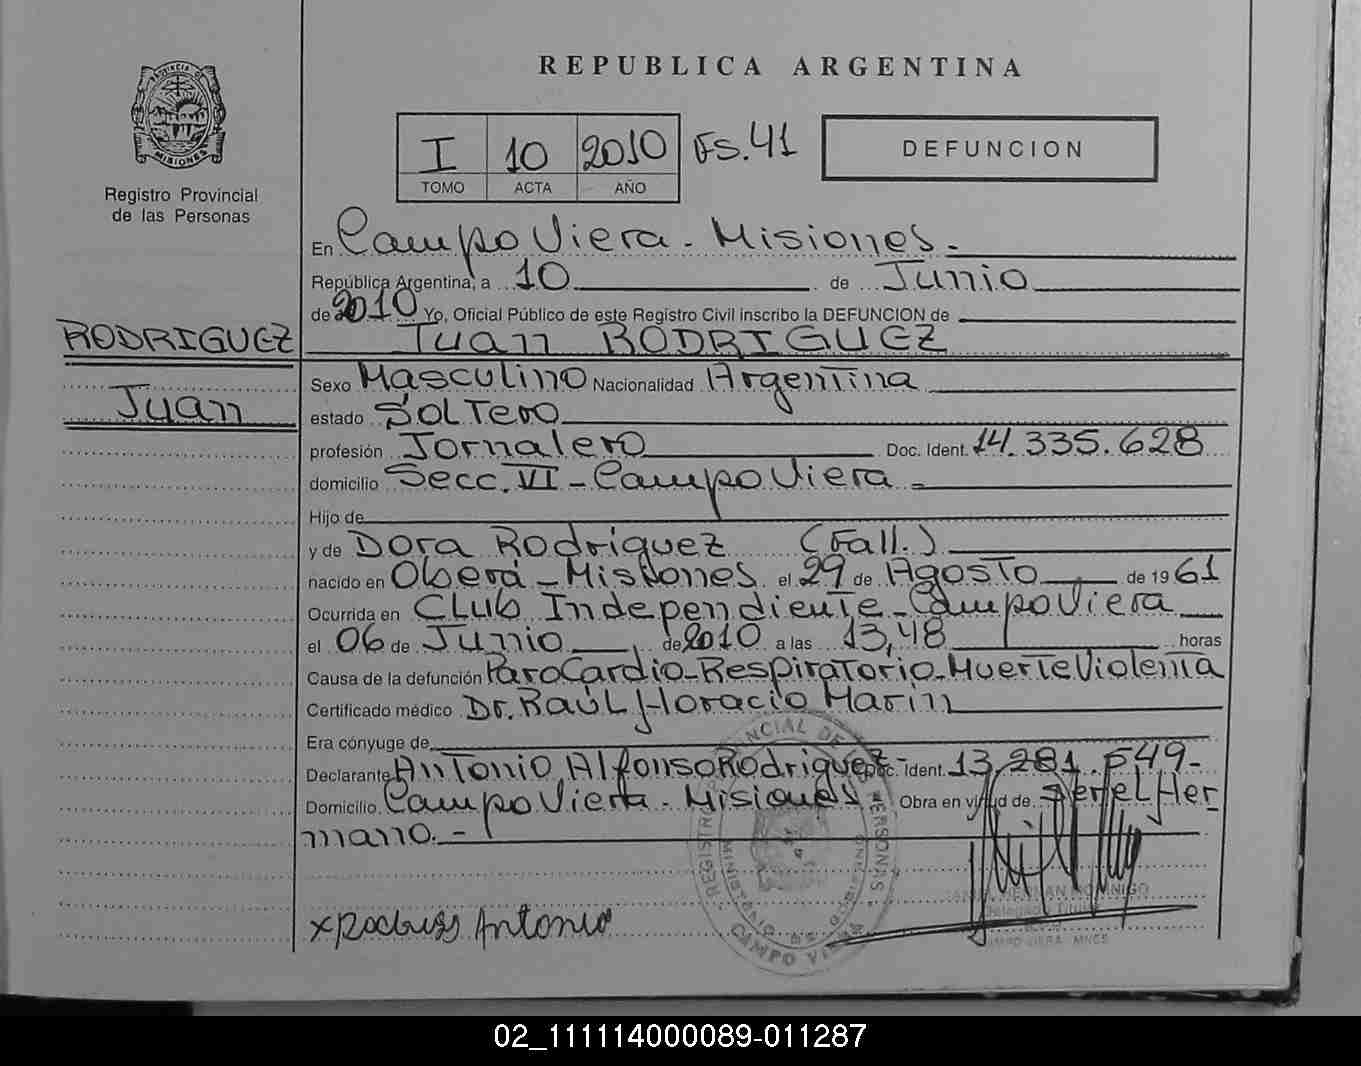 REPUBLICA ARGENTINA
PROVINCIA DE MISIONES
Registro Provincial
de las Personas
I 10 2010 Fs. 41
TOMO ACTA AÑO
DEFUNCION
En Campo Viera - Misiones.-
República Argentina, a 10 de Junio
de 2010 Yo, Oficial Público de este Registro Civil inscribo la DEFUNCION de
RODRIGUEZ
Juan RODRIGUEZ
Juan
Sexo Masculino Nacionalidad Argentina
estado Soltero
profesión Jornalero Doc. Ident. 14.335.628
domicilio Secc. VI - Campo Viera -
Hijo de
y de Dora Rodriguez (Fall.)
nacido en Oberá - Misiones el 29 de Agosto de 1961
Ocurrida en Club Independiente - Campo Viera
el 06 de Junio de 2010 a las 13,48 horas
Causa de la defunción Paro Cardio-Respiratorio - Muerte Violenta
Certificado médico Dr. Raúl Horacio Marin
Era cónyuge de
Declarante Antonio Alfonso Rodriguez - Doc. Ident. 13.281.549-
Domicilio Campo Viera - Misiones Obra en virtud de ser el Her
mano.-
x Antonio
CAMPO VIERA
02_111114000089-011287